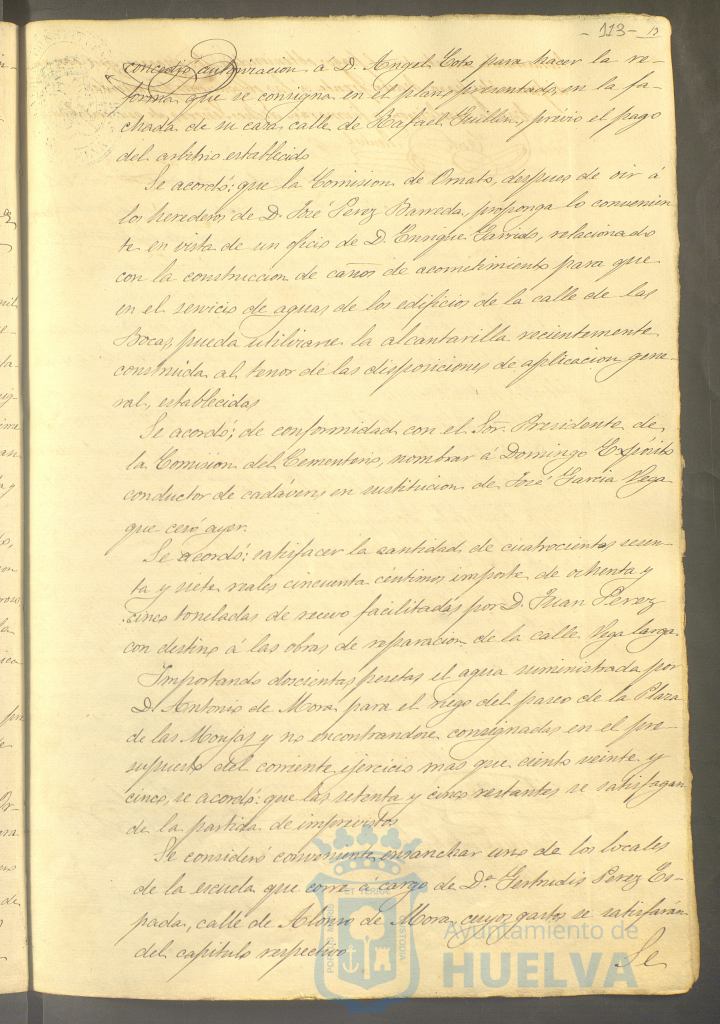 - 113 -
concedió autorizacion á D. Angel Cota para hacer la re-
forma que se consigna en el plano presentado, en la fa-
chada de su casa calle de Rafael Guillen, prévio el pago
del arbitrio establecido
Se acordó: que la Comision de Ornato, despues de oir á
los herederos de D. José Perez Barreda, proponga lo convenien-
te en vista de un oficio de D. Enrique Garrido, relacionado
con la construccion de caños de acometimiento para que
en el servicio de aguas de los edificios de la calle de las
Bocas, pueda utilizarse la alcantarilla recientemente
construida al tenor de las disposiciones de aplicacion gene-
ral, establecidas
Se acordó; de conformidad con el Sor. Presidente de
la Comision del Cementerio, nombrar á Domingo Expósito
conductor de cadáveres en sustitucion de José Garcia Vega
que cesó ayer.
Se acordó: satisfacer la cantidad de cuatrocientos sesen-
ta y siete reales cincuenta céntimos importe de ochenta y
cinco toneladas de recevo facilitadas por D. Juan Perez
con destino á las obras de reparacion de la calle Vega larga.
Importando doscientas pesetas el agua suministrada por
D. Antonio de Mora para el riego del paseo de la Plaza
de las Monjas y no encontrandose consignadas en el pre-
supuesto del corriente ejercicio mas que ciento veinte y
cinco, se acordó: que las setenta y cinco restantes se satisfagan
de la partida de imprevistos
Se consideró conveniente ensanchar uno de los locales
de la escuela que corre á cargo de Dª. Gertrudis Perez Es-
pada, calle de Alonso de Mora, cuyos gastos se satisfarán
del capítulo respectivo
Se
Ayuntamiento de
HUELVA